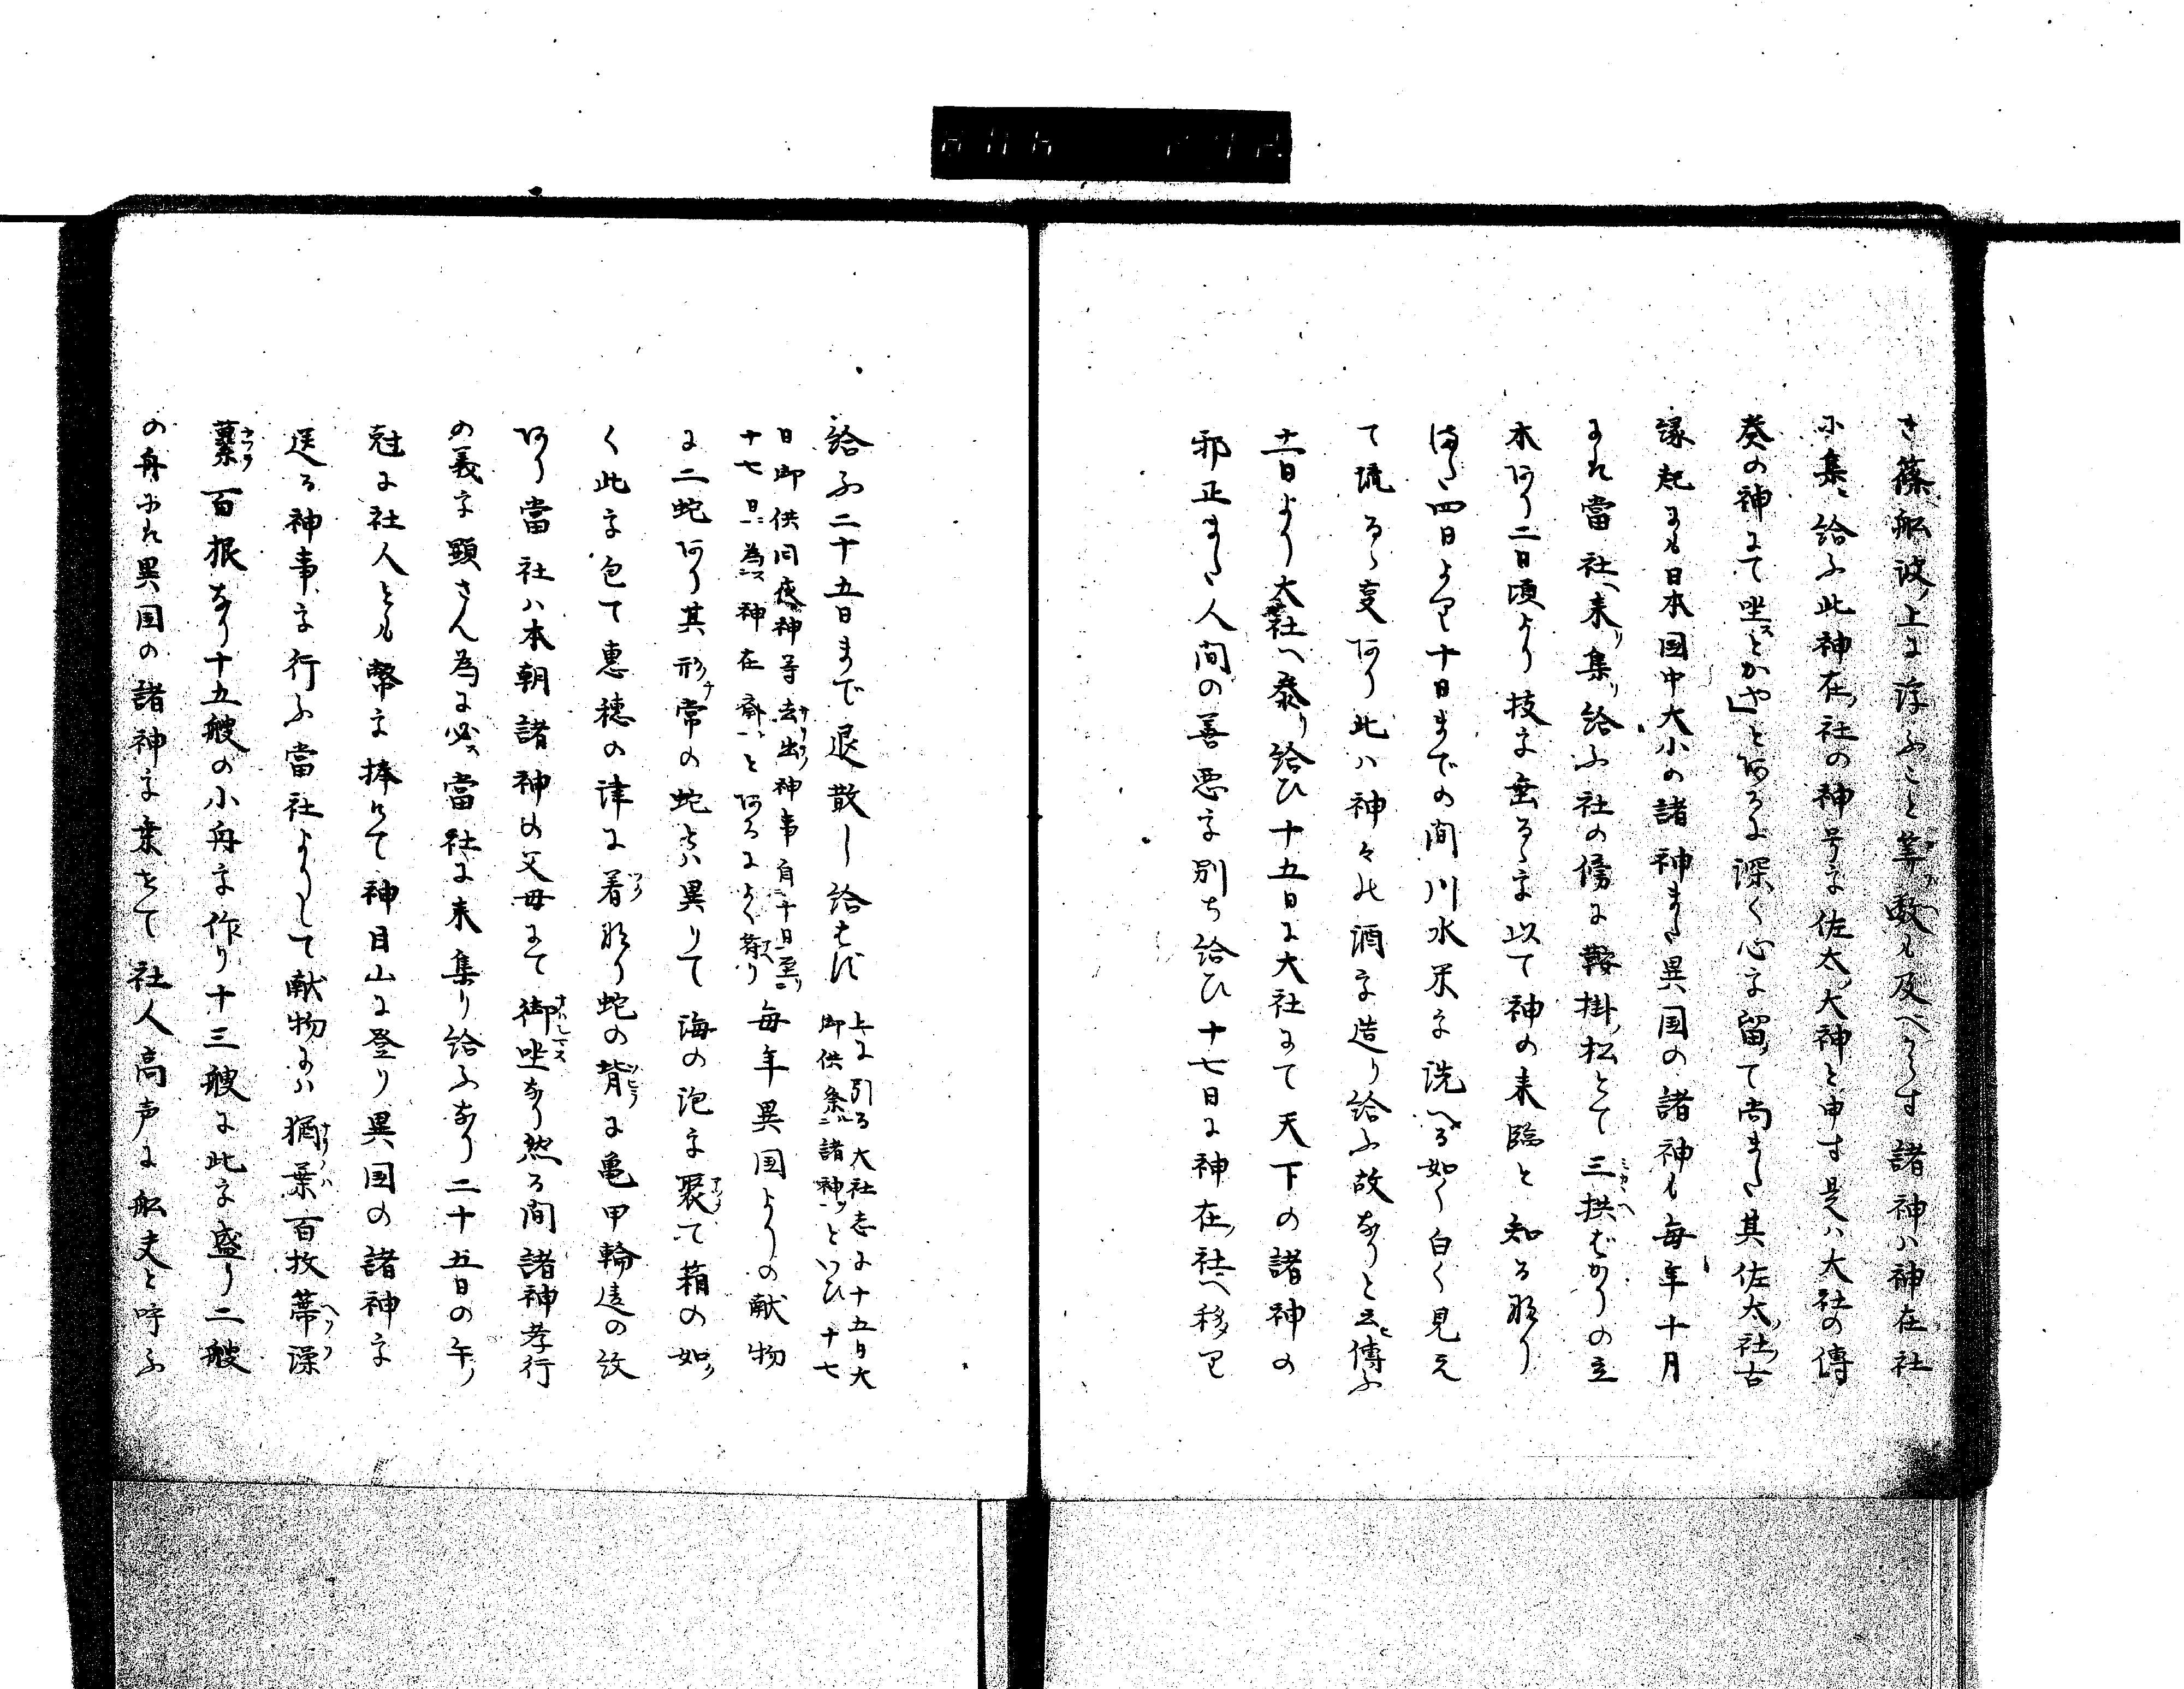 さ篠舩波ノ上に浮ふこと筭數も及べからす諸神ハ神在社
に集ミ給ふ此神在ノ社の神号を佐太ノ大神と申す是ハ大社の傳
葵の神にて坐スとかや」とあるに深く心を留て尚また其佐太ノ社ノ古
縁起にも日本国中大小の諸神また異国の諸神も毎年十月
にハ當社へ来リ集リ給ふ社の傍に鞍掛ノ松とて三拱ばかりの立
木あり二日頃より技を垂るゝを以て神の来臨と知る那り
また四日より十日までの間川水米を洗へる如く白く見え
て流るゝ㕝あり此ハ神々此酒を造り給ふ故なりと云傳ふ
十一日より大社へ参り給ひ十五日に大社にて天下の諸神の
邪正また人間の善悪を別ち給ひ十七日に神在ノ社へ移り
給ふ二十五日まで退散し給はず 上に引る大社志に十五日大
御供条ニ諸神ノといひ十七
日御供同夜神等去出神事自二十日一至二
十七日一為二神在斎一とあるによく符り
毎年異国よりの献物
に二蛇あり其形チ常の蛇とハ異りて海の泡を聚て箱の如ク
く此を包て恵穂の津に着那り蛇の背に亀甲輪違の紋
あり當社ハ本朝諸神の父母にて御坐なり然る間諸神孝行
の義を顕さん為に必ス當社に来集り給ふなり二十五日の午ノ
尅に社人とも幣を捧けて神目山に登り異国の諸神を
送る神事を行ふ當社よりして献物にハ楢葉百枚蔕澡
藁百根なり十五艘の小舟を作り十三艘に此を盛り二艘
の舟にハ異国の諸神を乗せて社人高声に舩夫と呼ふ